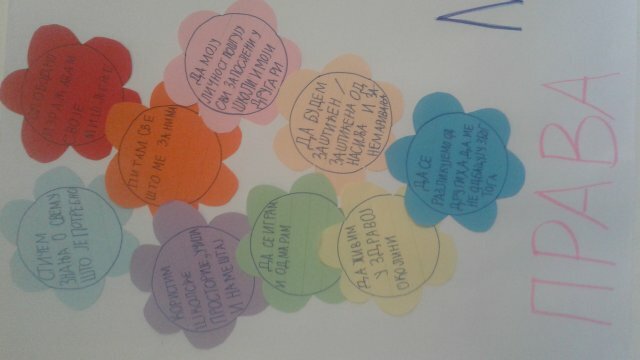 СТИЧЕМ
ЗНАЊА О СВЕМУ
ШТО ЈЕ ПОТРЕБНО
СЛОБОДНО
СВОЈЕ
МИШЉЕЊЕ
КОРИСТИМ
ШКОЛСКЕ
ПРОСТОРИЈЕ, УЧИЛА
И НАМЕШТАЈ
ПИТАМ СВЕ
ШТО МЕ ЗАНИМА
ДА МОЈУ
ЛИЧНОСТ ПОШТУЈУ
СВИ ЗАПОСЛЕНИ У
ШКОЛИ И МОЈИ
ДРУГАРИ
ДА СЕ ИГРАМ
И ОДМАРАМ
ДА БУДЕМ
ЗАШТИЋЕН /
ЗАШТИЋЕНА ОД
НАСИЉА И ЗА
НЕМАРИВАЊА
ДА ЖИВИМ
У ЗДРАВОЈ
ОКОЛИНИ
ДА СЕ
РАЗЛИКУЈЕМ ОД
ДРУГИХ А ДА МЕ
НЕ ЗБОГ
ТОГА
ПРАВА